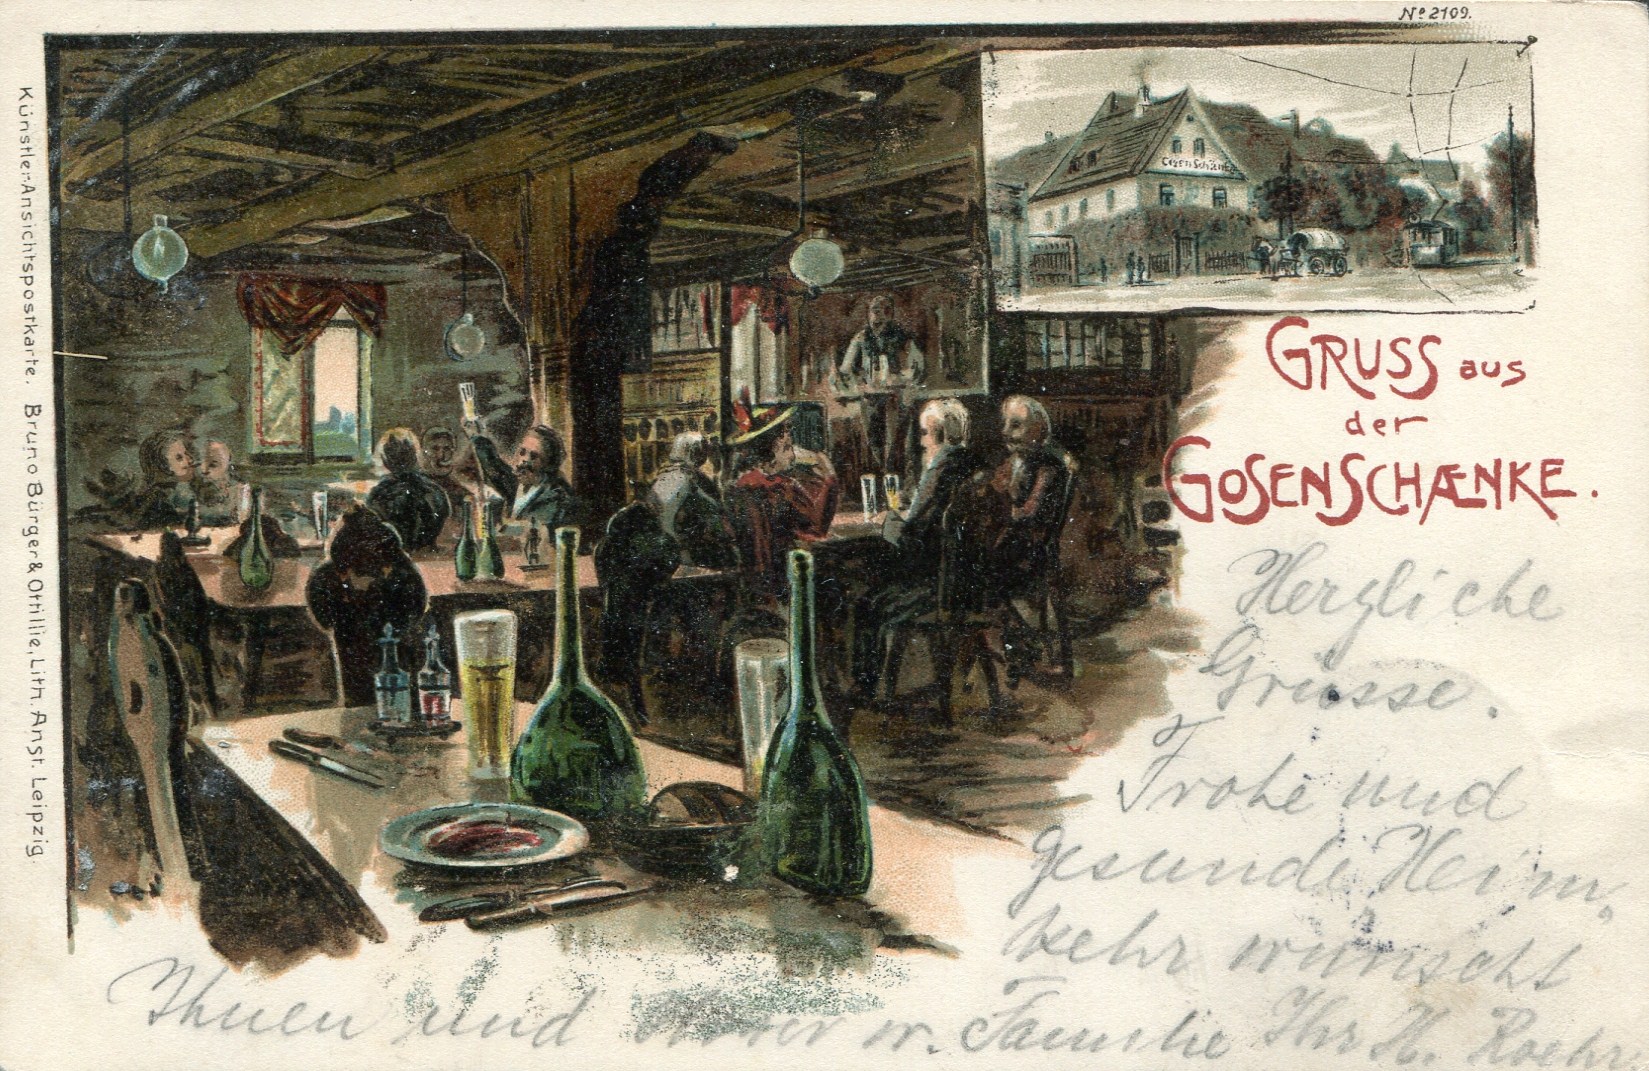 No 2109.
Gosenschänke
GRUSS aus
der
GOSENSCHÆNKE.
Herzliche
Grüsse.
Frohe und
gesunde Heim,
kehr wünscht
Ihnen und w. Familie Ihr H. Roehr
Künstler-Ansichtspostkarte. Bruno Bürger & Ottillie, Lith. Anst. Leipzig.